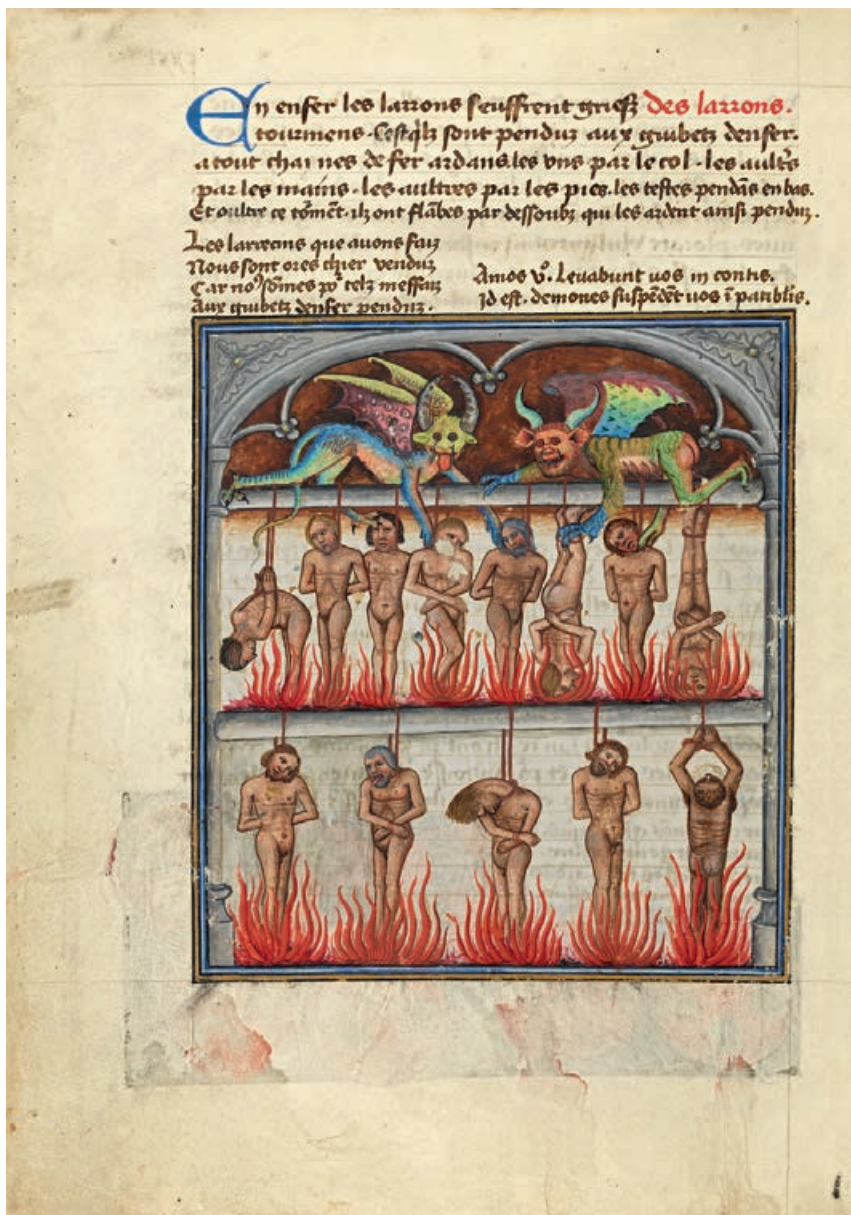 En enfer les larrons seuffrent griefz des larrons.
tourmens. Cestq̃lz sont penduz aux guibetz denfer.
a tout chaines de fer ardans. les vns par le col. les aultr̃s
par les mains. les aultres par les pies. les testes pendãs en bas.
Et oultre ce tõmẽt. ilz ont flãbes par dessoubz qui les ardent ainsi penduz.
Les larrecins que auons faiz
Nous sont ores chier venduz
Car noꝰ sõmes poᷣ telz meffaiz
Aux guibetz denfer penduz.
Amos vͦ. Leuabunt uos in contis.
Id est. demones suspẽdẽt uos ĩ patiblis.